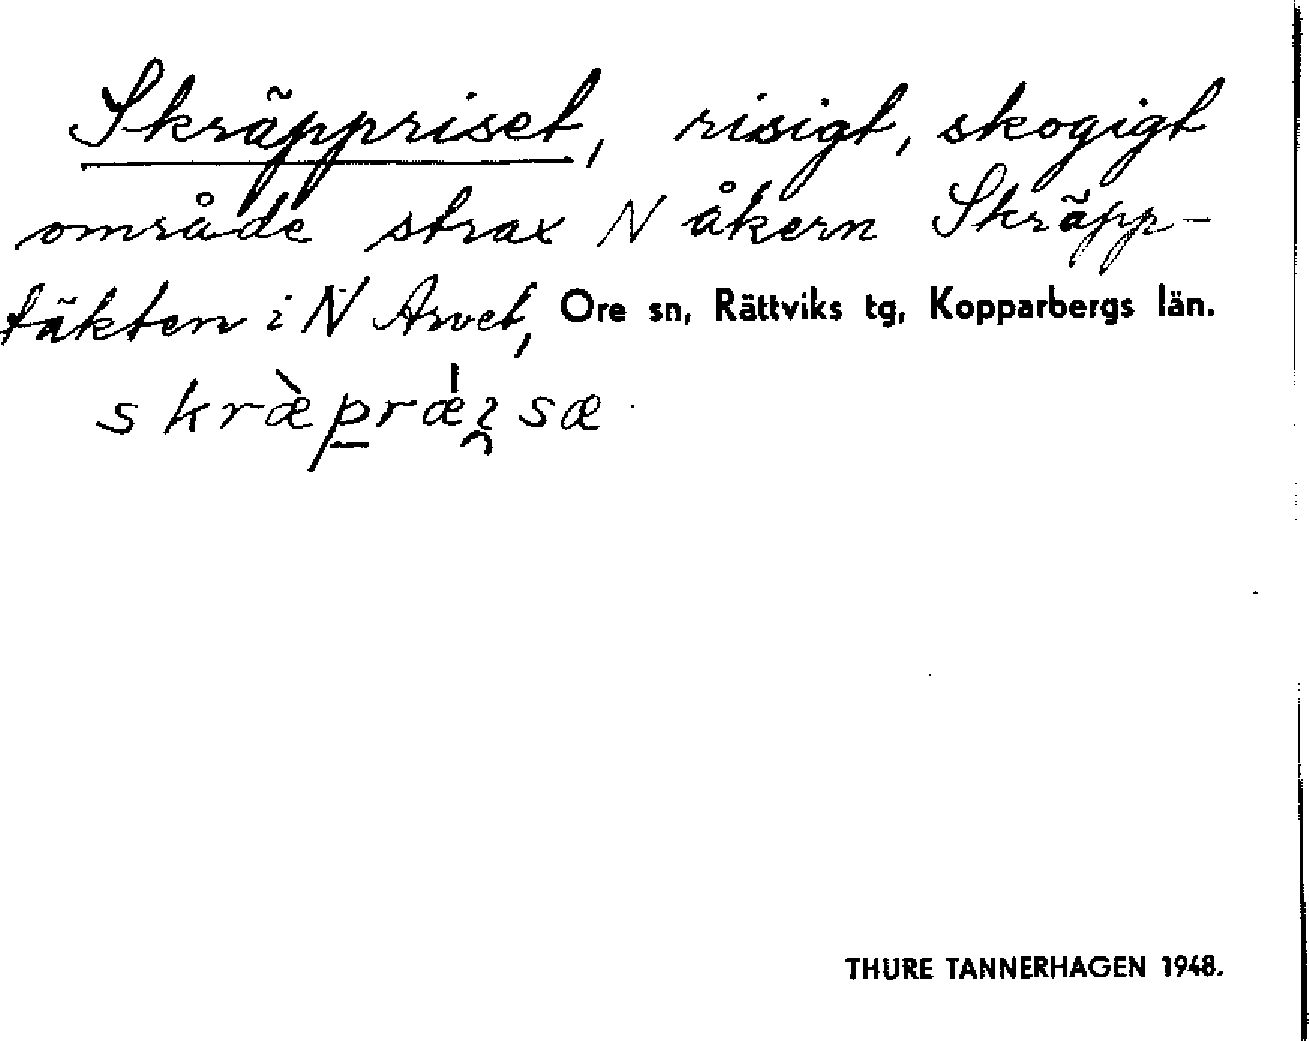 Skräppriset, risigt, skogigt
område strax N åkern Skräpp-
täkten i N Arvet, Ore sn, Rättviks tg, Kopparbergs län.
skræ̀p̱rǽi̯sæ
THURE TANNERHAGEN 1948.